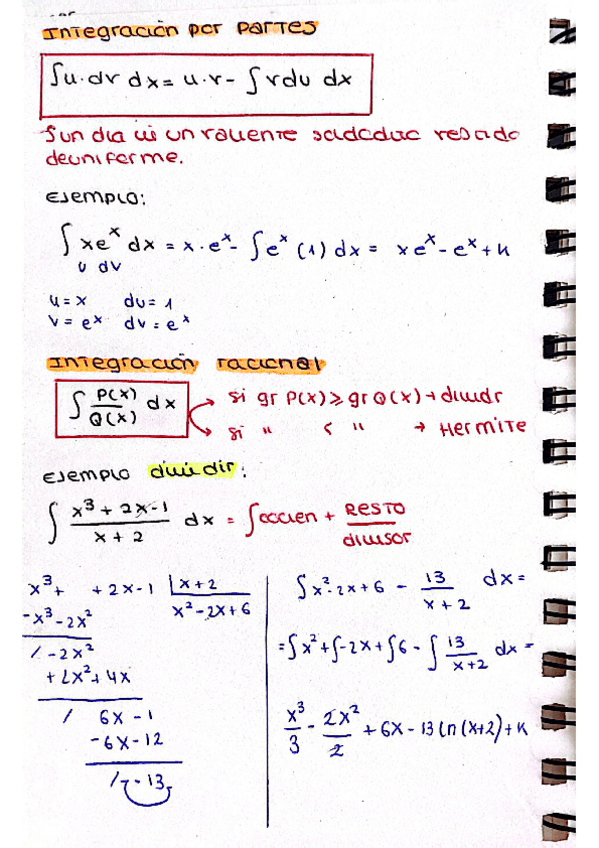 Integración por Partes
∫u·dv dx = u·v - ∫vdu dx
∫un día vi un valiente soldado vestido
de uniforme.
EJEMPLO:
∫xeˣ dx = x·eˣ - ∫eˣ (1) dx = xeˣ - eˣ + K
u dv
u = x du = 1
v = eˣ dv = eˣ
Integración racional
∫ P(x)/Q(x) dx
si gr P(x) ≥ gr Q(x) → dividir
si " < " → HERMITE
EJEMPLO dividir:
∫ (x³ + 2x - 1)/(x + 2) dx = ∫cocien + RESTO/divisor
x³ + + 2x - 1 |x + 2
-x³ - 2x² x² - 2x + 6
/ - 2x²
+ 2x² + 4x
/ 6x - 1
- 6x - 12
/ - 13
∫x² - 2x + 6 - 13/(x + 2) dx =
= ∫x² + ∫-2x + ∫6 - ∫ 13/(x+2) dx =
x³/3 - 2x²/2 + 6x - 13 ln (x+2) + K